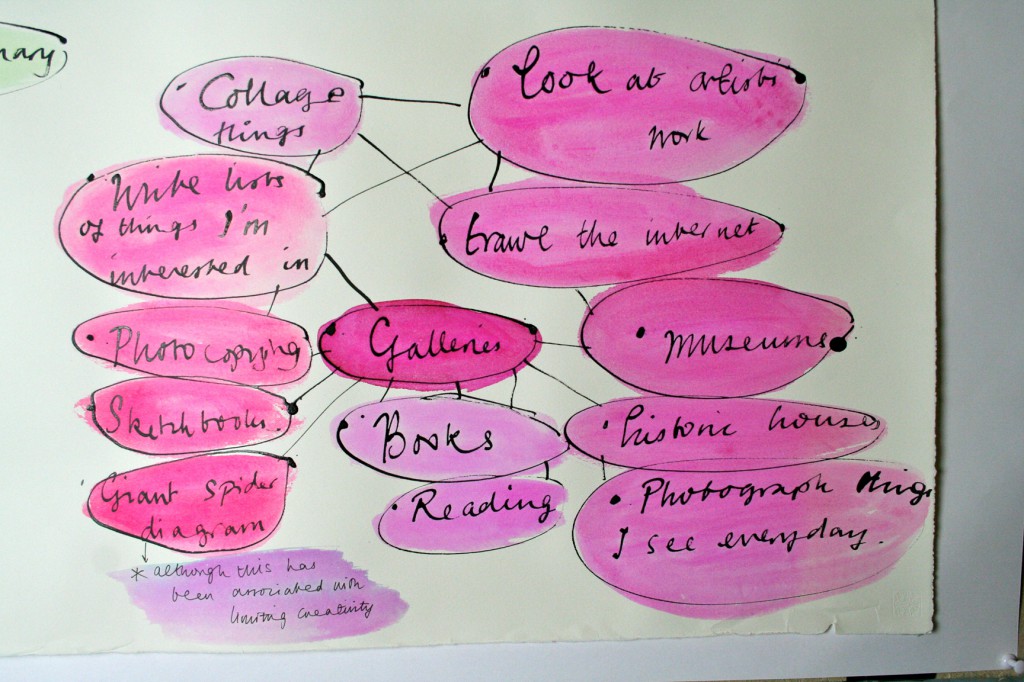 Collage
things
Look at artists
work
Write lists
of things I'm
interested in
trawl the internet
Photocopying
Galleries
Museums
Sketchbooks.
Books
historic houses
Giant spider
diagram
Reading
Photograph things
I see everyday.
* although this has
been associated with
limiting creativity